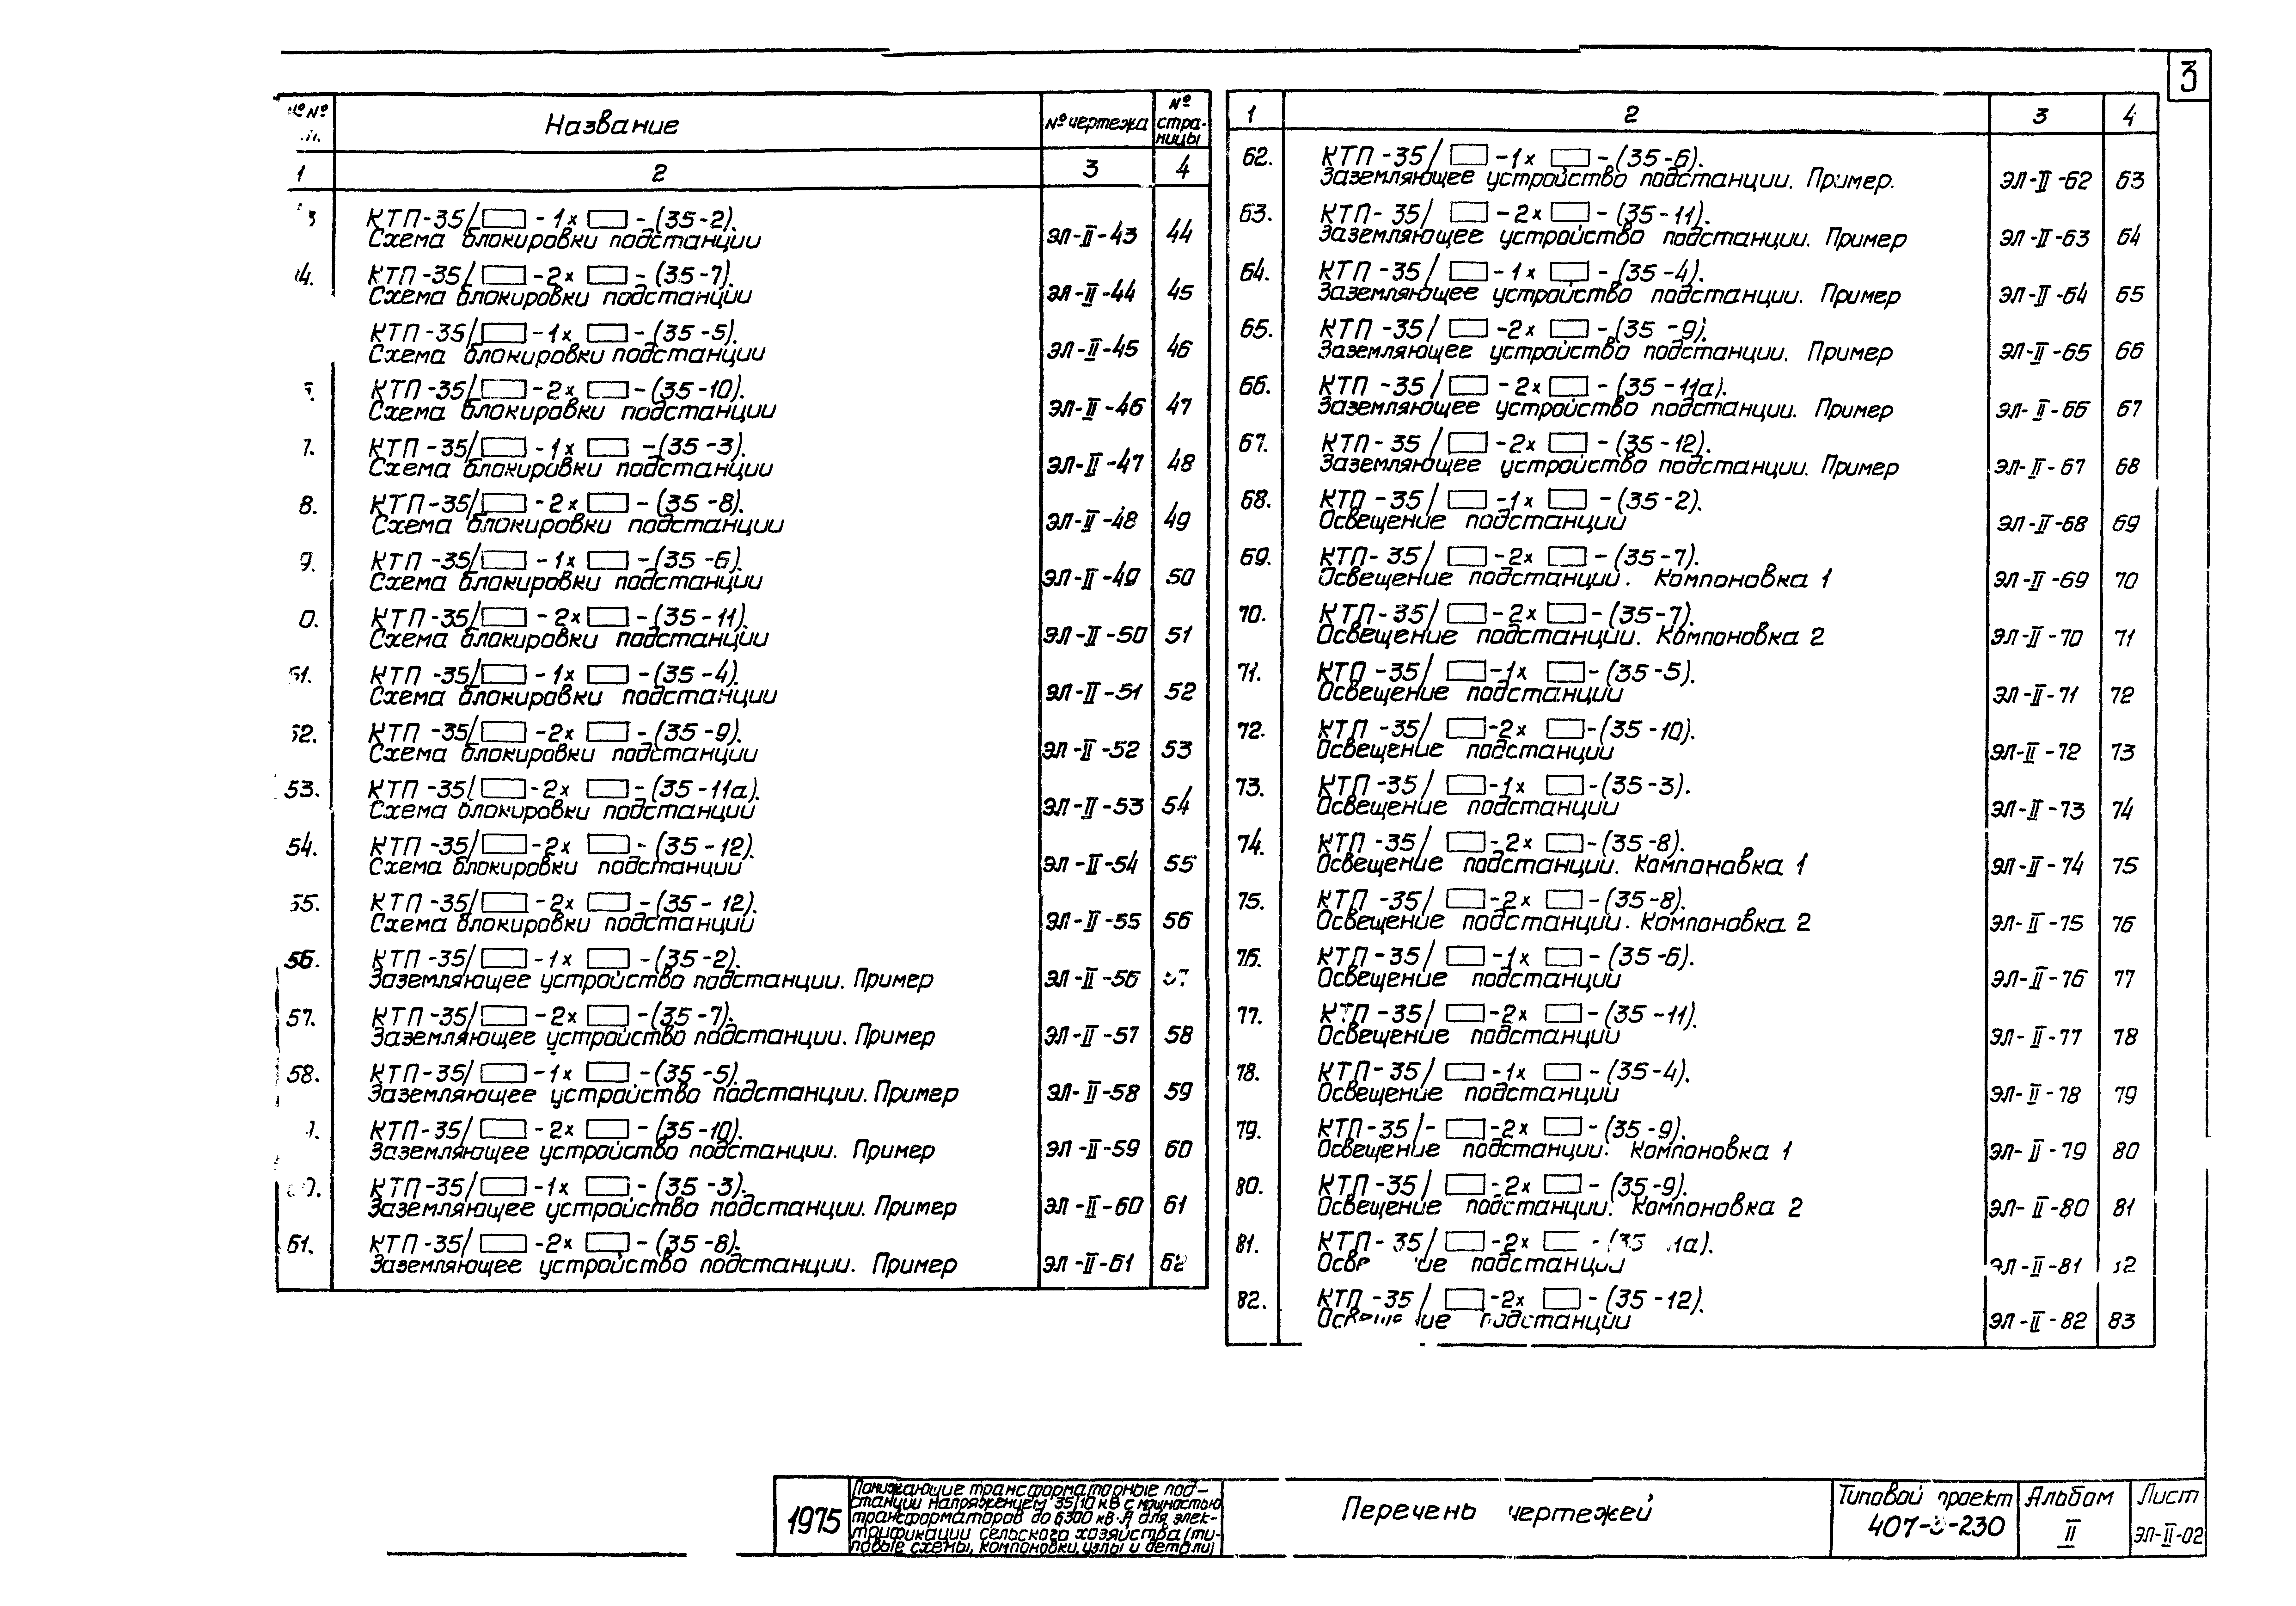 3
№№ Название № чертежа № страницы
1 2 3 4
3 КТП-35/▭-1×▭-(35-2).
Схема блокировки подстанции ЭЛ-II-43 44
4. КТП-35/▭-2×▭-(35-7).
Схема блокировки подстанции ЭЛ-II-44 45
КТП-35/▭-1×▭-(35-5).
Схема блокировки подстанции ЭЛ-II-45 46
КТП-35/▭-2×▭-(35-10).
Схема блокировки подстанции ЭЛ-II-46 47
7. КТП-35/▭-1×▭-(35-3).
Схема блокировки подстанции ЭЛ-II-47 48
8. КТП-35/▭-2×▭-(35-8).
Схема блокировки подстанции ЭЛ-II-48 49
9. КТП-35/▭-1×▭-(35-6).
Схема блокировки подстанции ЭЛ-II-49 50
0. КТП-35/▭-2×▭-(35-11).
Схема блокировки подстанции ЭЛ-II-50 51
51. КТП-35/▭-1×▭-(35-4).
Схема блокировки подстанции ЭЛ-II-51 52
52. КТП-35/▭-2×▭-(35-9).
Схема блокировки подстанции ЭЛ-II-52 53
53. КТП-35/▭-2×▭-(35-11а).
Схема блокировки подстанций ЭЛ-II-53 54
54. КТП-35/▭-2×▭-(35-12).
Схема блокировки подстанций ЭЛ-II-54 55
55. КТП-35/▭-2×▭-(35-12).
Схема блокировки подстанций ЭЛ-II-55 56
56. КТП-35/▭-1×▭-(35-2).
Заземляющее устройство подстанции. Пример ЭЛ-II-56
57. КТП-35/▭-2×▭-(35-7).
Заземляющее устройство подстанции. Пример ЭЛ-II-57 58
58. КТП-35/▭-1×▭-(35-5).
Заземляющее устройство подстанции. Пример ЭЛ-II-58 59
КТП-35/▭-2×▭-(35-10).
Заземляющее устройство подстанции. Пример ЭЛ-II-59 60
0. КТП-35/▭-1×▭-(35-3).
Заземляющее устройство подстанции. Пример ЭЛ-II-60 61
61. КТП-35/▭-2×▭-(35-8).
Заземляющее устройство подстанции. Пример ЭЛ-II-61 62
1 2 3 4
62. КТП-35/▭-1×▭-(35-6).
Заземляющее устройство подстанции. Пример. ЭЛ-II-62 63
63. КТП-35/▭-2×▭-(35-11).
Заземляющее устройство подстанции. Пример ЭЛ-II-63 64
64. КТП-35/▭-1×▭-(35-4).
Заземляющее устройство подстанции. Пример ЭЛ-II-64 65
65. КТП-35/▭-2×▭-(35-9).
Заземляющее устройство подстанции. Пример ЭЛ-II-65 66
66. КТП-35/▭-2×▭-(35-11а).
Заземляющее устройство подстанции. Пример ЭЛ-II-66 67
67. КТП-35/▭-2×▭-(35-12).
Заземляющее устройство подстанции. Пример ЭЛ-II-67 68
68. КТП-35/▭-1×▭-(35-2).
Освещение подстанций ЭЛ-II-68 69
69. КТП-35/▭-2×▭-(35-7).
Освещение подстанции. Компоновка 1 ЭЛ-II-69 70
70. КТП-35/▭-2×▭-(35-7).
Освещение подстанции. Компоновка 2 ЭЛ-II-70 71
71. КТП-35/▭-1×▭-(35-5).
Освещение подстанции ЭЛ-II-71 72
72. КТП-35/▭-2×▭-(35-10).
Освещение подстанции ЭЛ-II-72 73
73. КТП-35/▭-1×▭-(35-3).
Освещение подстанции ЭЛ-II-73 74
74. КТП-35/▭-2×▭-(35-8).
Освещение подстанции. Компоновка 1 ЭЛ-II-74 75
75. КТП-35/▭-2×▭-(35-8).
Освещение подстанции. Компоновка 2 ЭЛ-II-75 76
76. КТП-35/▭-1×▭-(35-6).
Освещение подстанции ЭЛ-II-76 77
77. КТП-35/▭-2×▭-(35-11).
Освещение подстанции ЭЛ-II-77 78
78. КТП-35/▭-1×▭-(35-4).
Освещение подстанции ЭЛ-II-78 79
79. КТП-35/-▭-2×▭-(35-9).
Освещение подстанции. Компоновка 1 ЭЛ-II-79 80
80. КТП-35/▭-2×▭-(35-9).
Освещение подстанции. Компоновка 2 ЭЛ-II-80 81
81. КТП-35/▭-2×▭-(35 11а).
подстанции ЭЛ-II-81
82. КТП-35/▭-2×▭-(35-12).
подстанции ЭЛ-II-82 83
1975
Понижающие трансформаторные под-
станции напряжением 35/10 кВ с мощностью
трансформаторов до 6300 кВ·А для элек-
трификации сельского хозяйства (ти-
повые схемы, компоновки, узлы и детали)
Перечень чертежей
Типовой проект
407-3-230
Альбом
II
Лист
ЭЛ-II-02